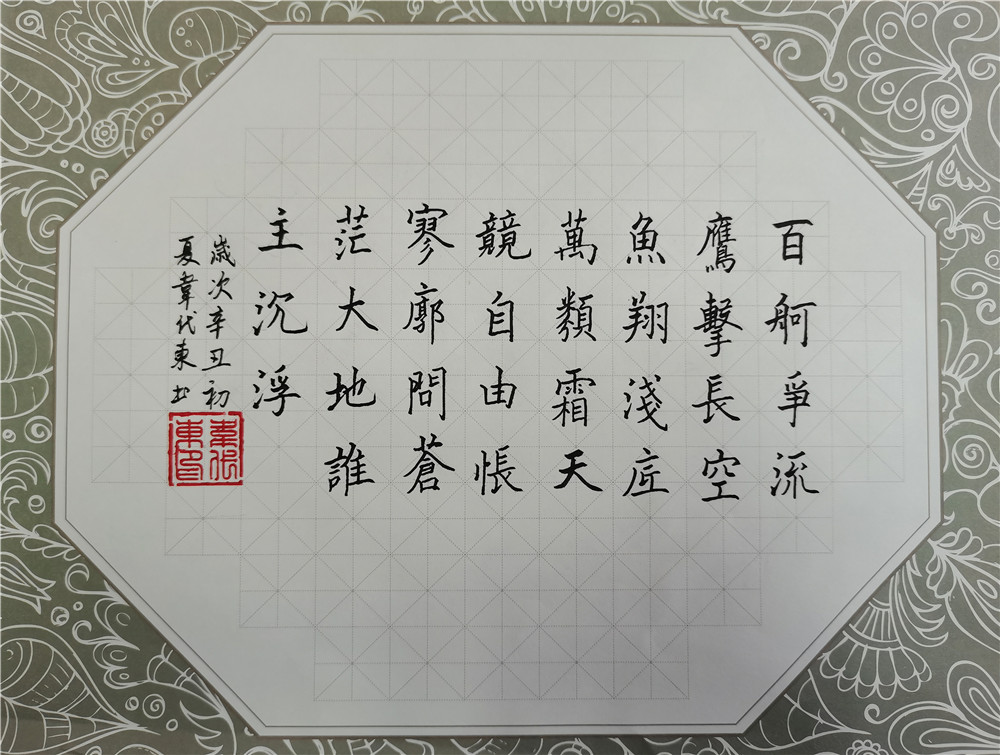 百舸爭流
鷹擊長空
魚翔淺底
萬類霜天
競自由悵
寥廓問蒼
茫大地誰
主沉浮
歲次辛丑初
夏韋代東书